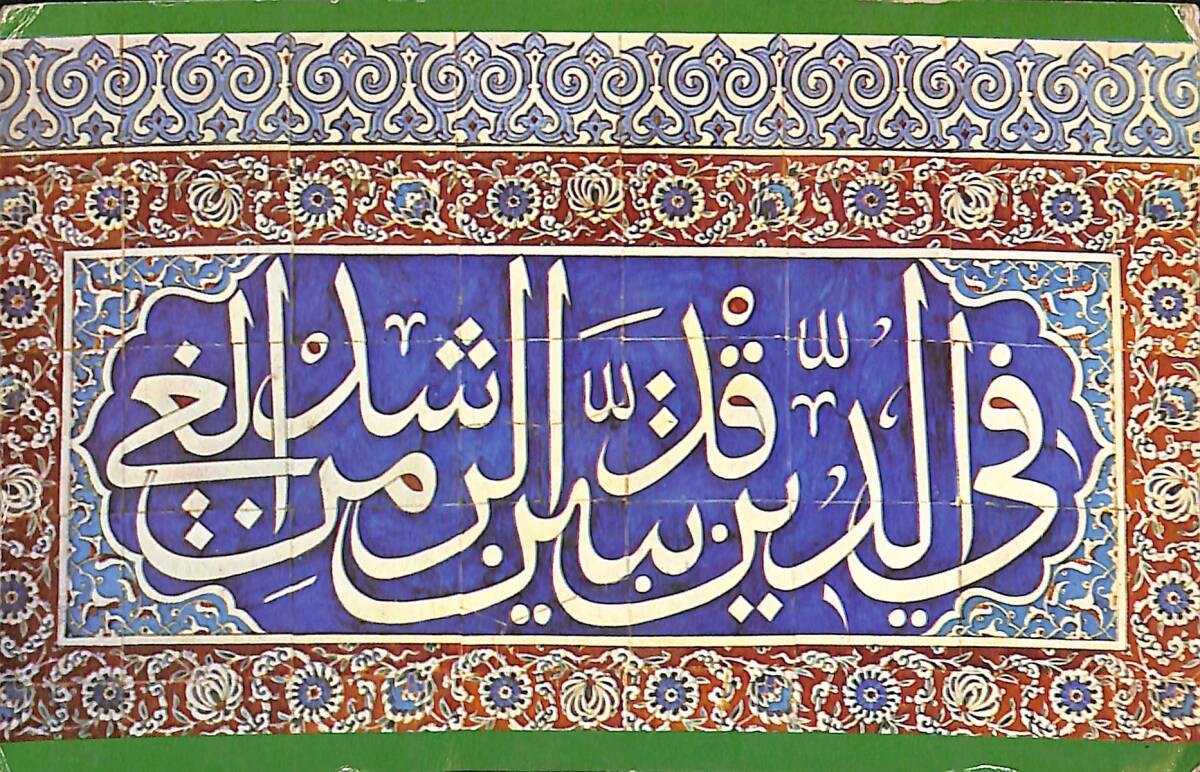 فِى الدِّينِ قَدْ تَبَيَّنَ الرُّشْدُ مِنَ الْغَيِّ